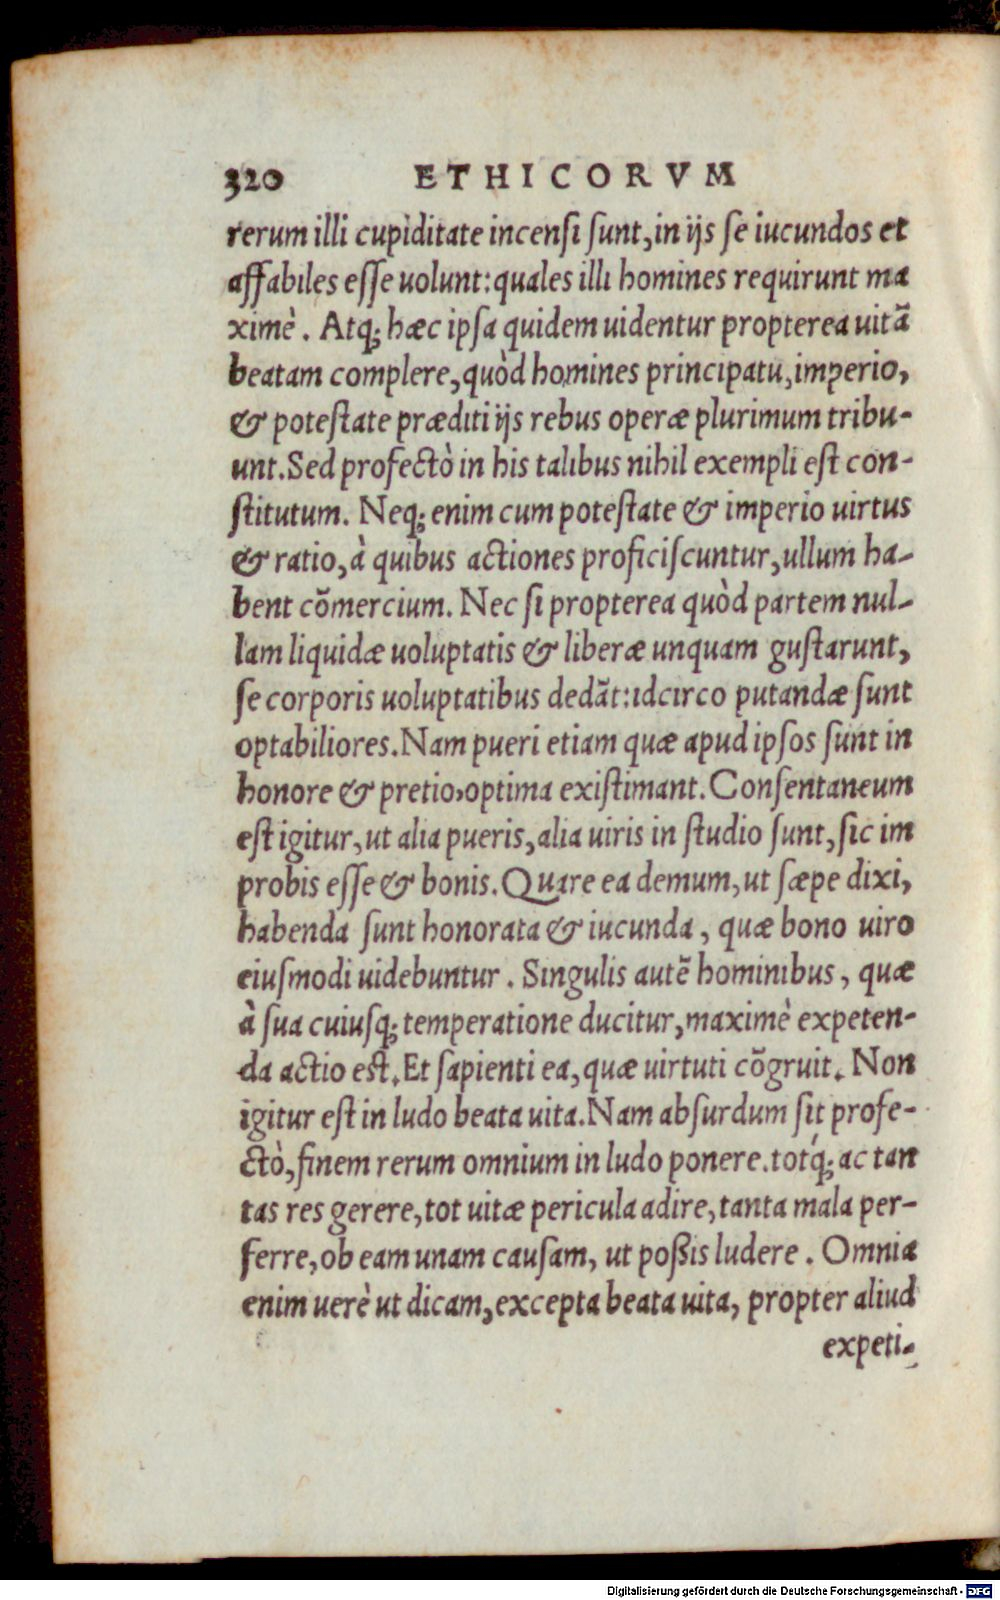 320 ETHICORVM
rerum illi cupiditate incensi sunt, in ijs se iucundos et
affabiles esse uolunt: quales illi homines requirunt ma
ximè. Atq; hæc ipsa quidem uidentur propterea uitã
beatam complere, quòd homines principatu, imperio,
& potestate præditi ijs rebus operæ plurimum tribu-
unt. Sed profectò in his talibus nihil exempli est con-
stitutum. Neq; enim cum potestate & imperio uirtus
& ratio, à quibus actiones proficiscuntur, ullum ha-
bent cõmercium. Nec si propterea quòd partem nul-
lam liquidæ uoluptatis & liberæ unquam gustarunt,
se corporis uoluptatibus dedãt: idcirco putandæ sunt
optabiliores. Nam pueri etiam quæ apud ipsos sunt in
honore & pretio, optima existimant. Consentaneum
est igitur, ut alia pueris, alia uiris in studio sunt, sic im
probis esse & bonis. Quare ea demum, ut sæpe dixi,
habenda sunt honorata & iucunda, quæ bono uiro
eiusmodi uidebuntur. Singulis autẽ hominibus, quæ
à sua cuiusq; temperatione ducitur, maximè expeten-
da actio est. Et sapienti ea, quæ uirtuti cõgruit. Non
igitur est in ludo beata uita. Nam absurdum sit profe-
ctò, finem rerum omnium in ludo ponere. totq́; ac tan
tas res gerere, tot uitæ pericula adire, tanta mala per-
ferre, ob eam unam causam, ut poßis ludere. Omnia
enim uerè ut dicam, excepta beata uita, propter aliud
expeti-
Digitalisierung gefördert durch die Deutsche Forschungsgemeinschaft - DFG